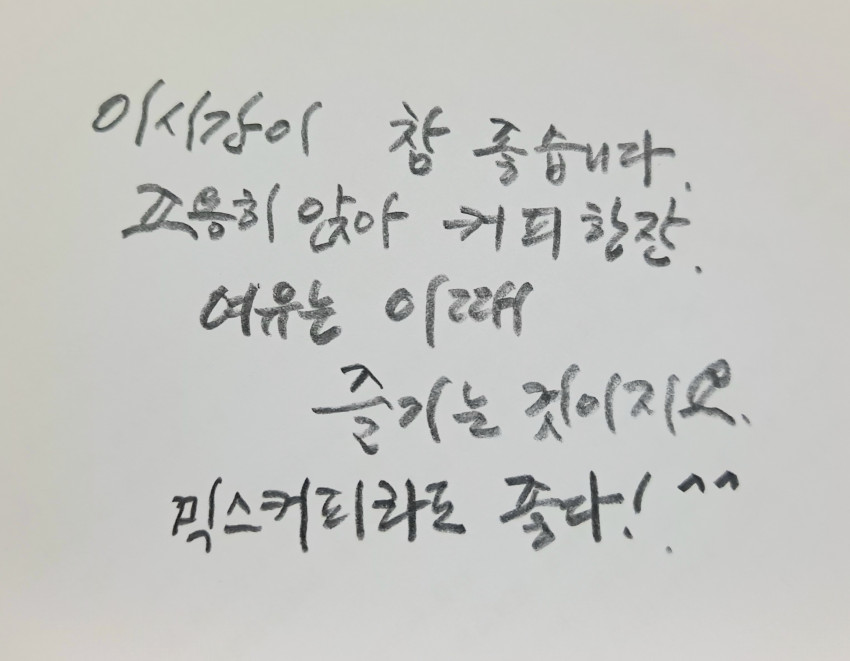 이시간이 참 좋습니다.
조용히 앉아 커피한잔.
여유는 이때
즐기는 것이지요.
믹스커피라도 좋다! ^^